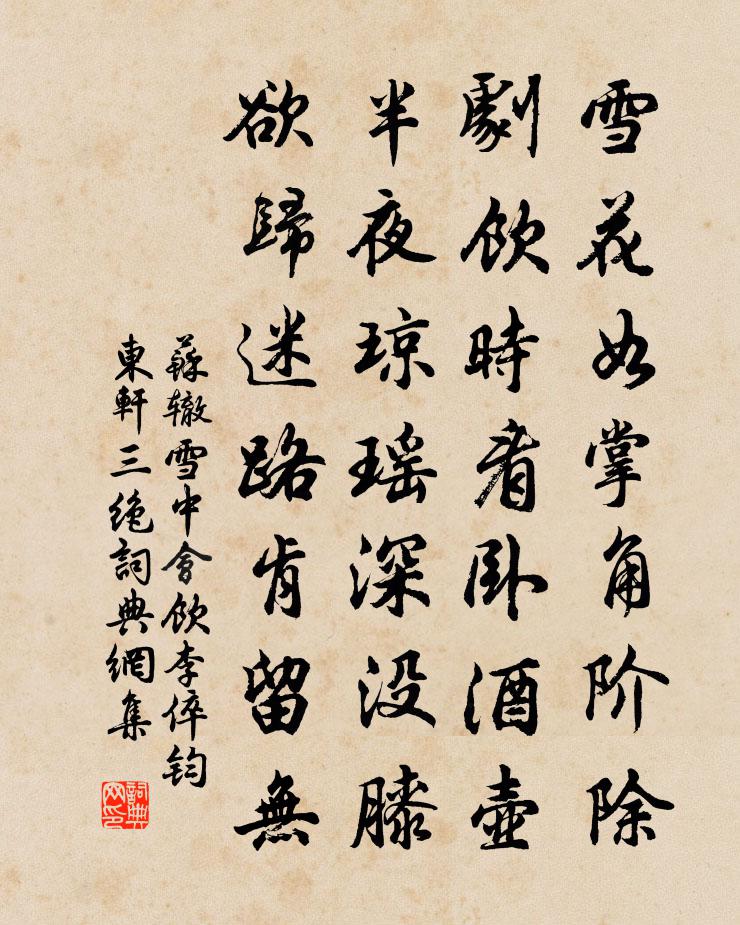 雪花如掌角阶除
劇飲時看卧酒壺
半夜琼瑶深没膝
欲歸迷路肯留無
蘇辙雪中會飲李倅鈞
東軒三絶詞典網集
詞典网印